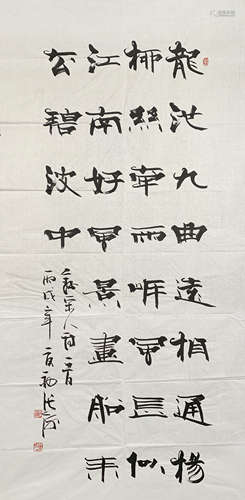 龍池九曲遠相通楊
柳絲牽兩岸風長似
江南好風景畫船来
去碧波中
宋人詩一首
丙戌年夏初